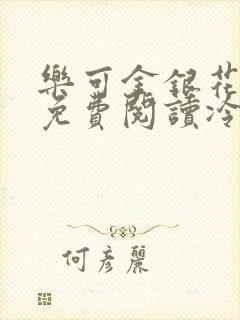 樂可金銀花
免費閱讀冷
何彥麗